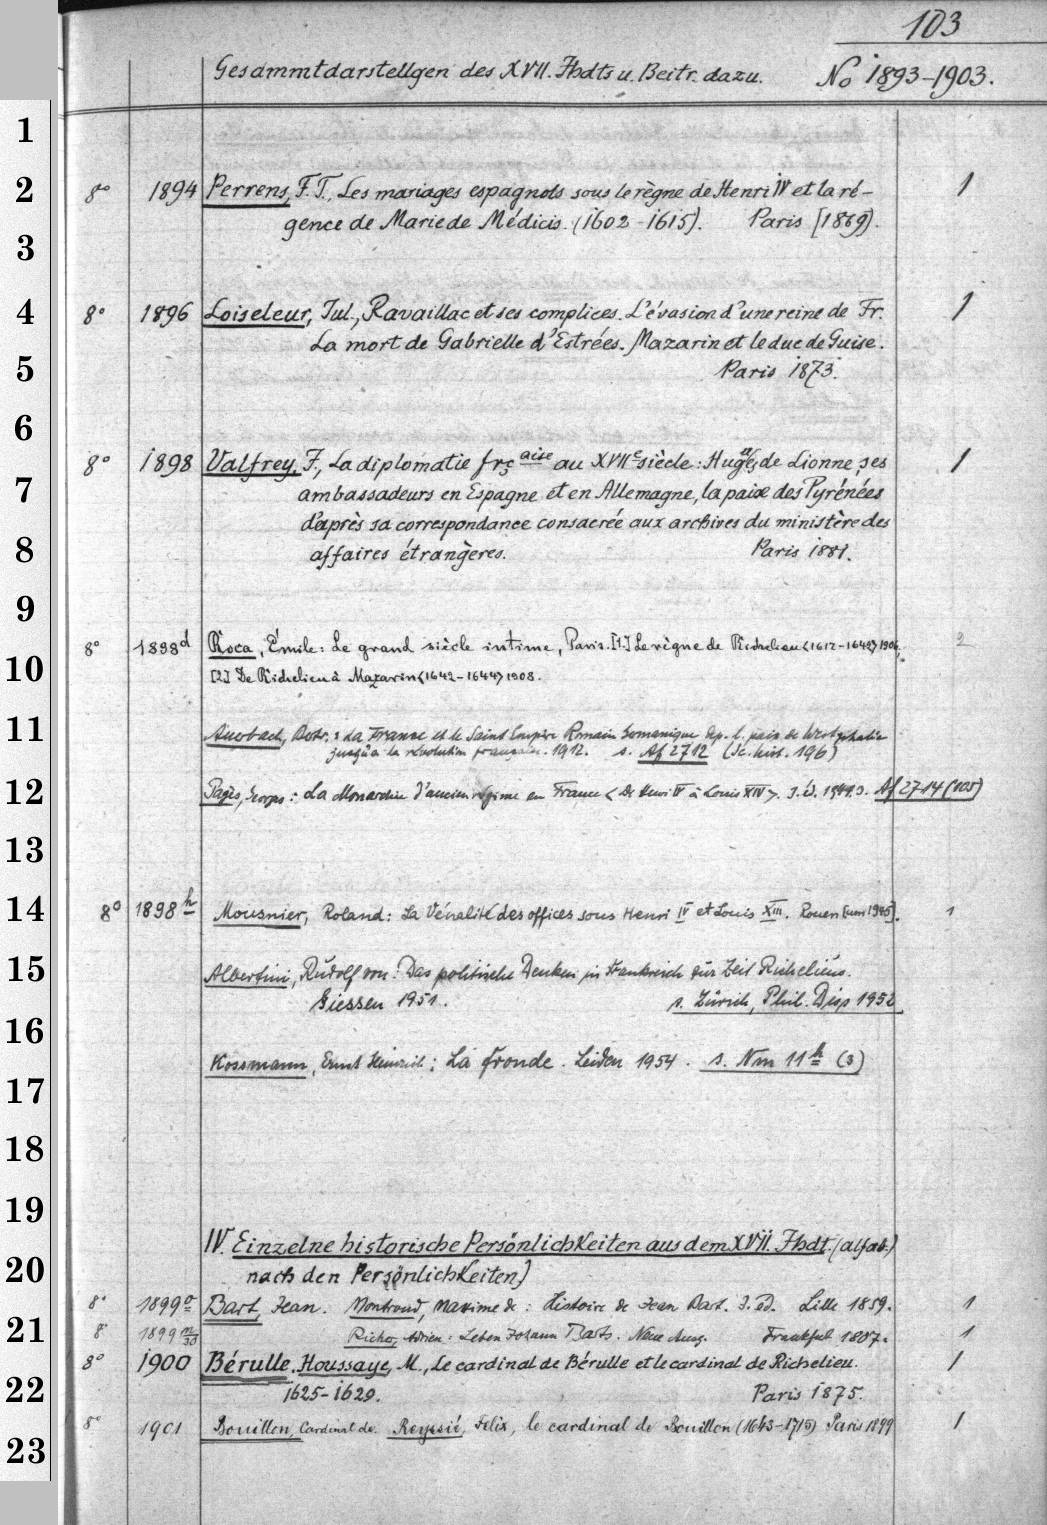 103
Gesammtdarstellgen des XVII. Jhdts u. Beitr. dazu. No 1893-1903.
1
2 8° 1894 Perrens, F. T., Les mariages espagnols sous le règne de Henri IV et la ré- 1
gence de Marie de Médicis. (1602-1615). Paris [1869].
3
4 8° 1896 Loiseleur, Jul., Ravaillac et ses complices. L'évasion d'une reine de Fr. 1
La mort de Gabrielle d'Estrées. Mazarin et le duc de Guise.
5 Paris 1873.
6
8° 1898 Valfrey, J., La diplomatie frçaise au XVIIe siècle: Hugues de Lionne, ses 1
7 ambassadeurs en Espagne et en Allemagne, la paix des Pyrénées
d'après sa correspondance consacrée aux archives du ministère des
8 affaires étrangères. Paris 1881.
9
8° 1898d Roca, Émile: Le grand siècle intime, Paris. [1.] Le règne de Richelieu <1617-1642> 1906. 2
10 [2.] De Richelieu à Mazarin <1642-1644> 1908.
11 Auerbach, Bertr.: La France et le Saint Empire Romain Germanique dep. l. paix de Westphalie
jusqu'à la révolution française. 1912. s. Af 2712 (Sc. hist. 196)
12 Pagès, Georges: La Monarchie d'ancien régime en France <De Henri IV à Louis XIV>. 3. éd. s. Af 2714 (105)
13
14 8° 1898h Mousnier, Roland: La Vénalité des offices sous Henri IV et Louis XIII. Rouen [um 1945]. 1
15 Albertini, Rudolf von: Das politische Denken in Frankreich zur Zeit Richelieus.
Giessen 1951. s. Zürich, Phil. Diss 1952
16
Kossmann, Ernst Heinrich: La Fronde. Leiden 1954. s. Nm 11h (3)
17
18
19
IV. Einzelne historische Persönlichkeiten aus dem XVII. Jhdt. (alfab.)
20 nach den Persönlichkeiten)
8° 1899o Bart, Jean. Montrond, Maxime de: Histoire de Jean Bart. 3. éd. Lille 1859. 1
21 8° 1899 m/30 Richer, Adrien: Leben Johann Barts. Neue Ausg. Frankfurt 1807. 1
8° 1900 Bérulle. Houssaye, M., Le cardinal de Bérulle et le cardinal de Richelieu. 1
22 1625-1629. Paris 1875.
8° 1901 Bouillon, Cardinal de. Reyssié, Félix, le cardinal de Bouillon (1643-1715) Paris 1899 1
23